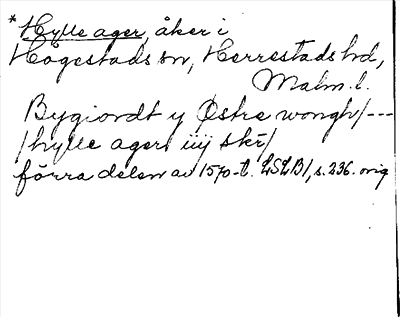 * Hylle ager, åker i
Högestads sn, Herrestads hd,
Malm. l.
Bygiordt y Østre wongh/---
/hylle ager iiij skr/
förra delen av 1570-t. LSLB1, s. 236. orig